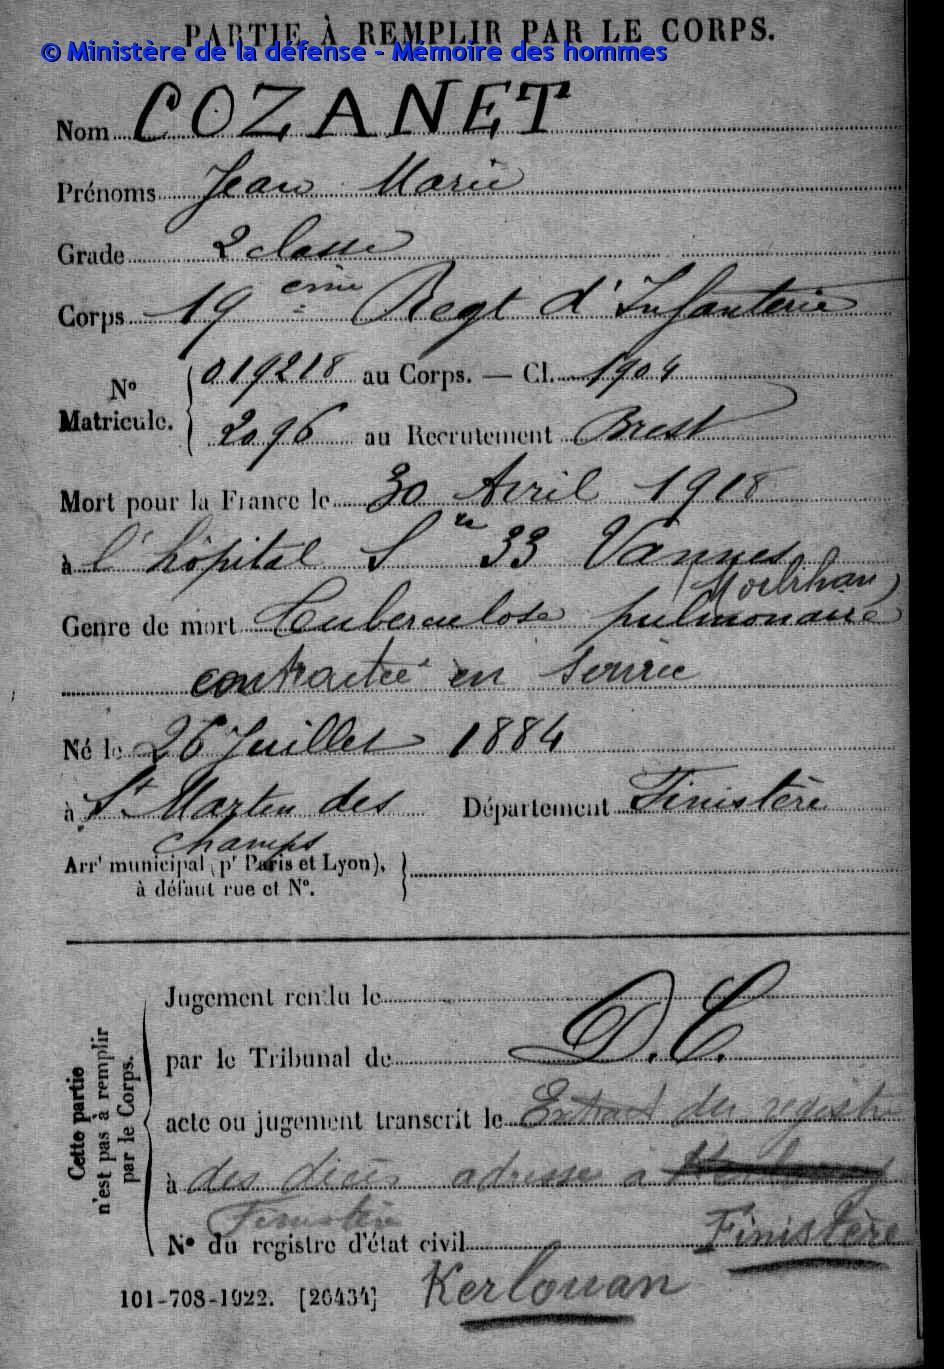 PARTIE À REMPLIR PAR LE CORPS.
© Ministère de la défense - Mémoire des hommes
Nom COZANET
Prénoms Jean Marie
Grade 2 classe
Corps 19 ème Regt d'Infanterie
N° Matricule. 019218 au Corps. — Cl. 1904
2096 au Recrutement Brest
Mort pour la France le 30 Avril 1918
à l'hôpital S re 33 Vannes
(Morbihan)
Genre de mort Tuberculose pulmonaire
contractée en service
Né le 26 Juillet 1884
à St Marten des Département Finistère
champs
Arrt municipal (pr Paris et Lyon),
à défaut rue et N°.
Cette partie n'est pas à remplir par le Corps.
Jugement rendu le
par le Tribunal de D.C.
acte ou jugement transcrit le Extrait du registre
à des décès adressé à
Finistère
N° du registre d'état civil Finistère
101-708-1922. [26434] Kerlouan